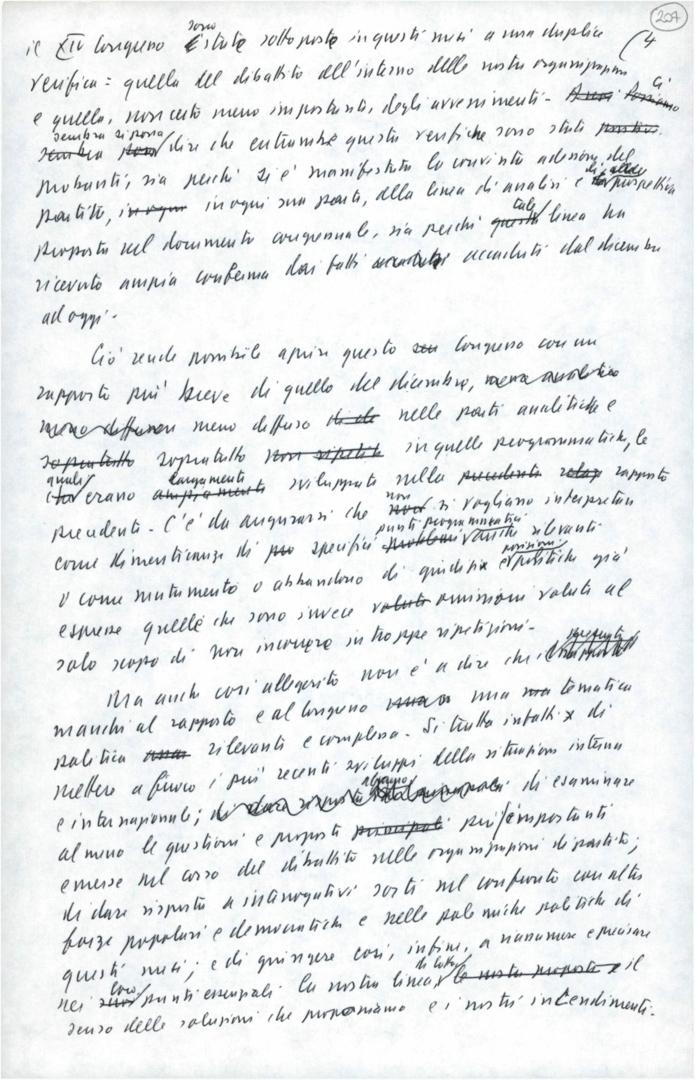 207
4
il XIV Congresso sono state sottoposte in questi mesi a una duplice
verifica: quella del dibattito all'interno delle nostre organizzazioni
e quella, non certo meno importante, degli avvenimenti. Ci
sembra si possa dire che entrambe queste verifiche sono state
probanti, sia perché si è manifestata la convinta adesione del
partito, in ogni sua parte, alla linea di analisi e di prospettiva
proposta nel documento congressuale, sia perché tale linea ha
ricevuto ampia conferma dai fatti accaduti dal dicembre
ad oggi.
Ciò rende possibile aprire questo Congresso con un
rapporto più breve di quello del dicembre,
meno diffuso nelle parti analitiche e
soprattutto in quelle programmatiche, le
quali erano largamente sviluppate nella rapporto
precedente. C'è da augurarsi che non si vogliano interpretare
come dimenticanze di specifici punti programmatici rilevanti
o come mutamento o abbandono di giudizi e posizioni politiche già
espresse quelle che sono invece omissioni volute al
solo scopo di non incorrere in troppe ripetizioni.
Ma anche così alleggerito non è a dire che
manchi al rapporto e al Congresso una tematica
politica rilevante e complessa. Si tratta infatti di
mettere a fuoco i più recenti sviluppi della situazione interna
e internazionale; di esaminare
almeno le questioni e proposte più importanti
emerse nel corso del dibattito nelle organizzazioni di partito;
di dare risposta a interrogativi sorti nel confronto con altre
forze popolari e democratiche e nelle polemiche politiche di
questi mesi; e di giungere così, infine, a riassumere e precisare
nei loro punti essenziali la nostra linea di lotta, il
senso delle soluzioni che proponiamo e i nostri intendimenti.